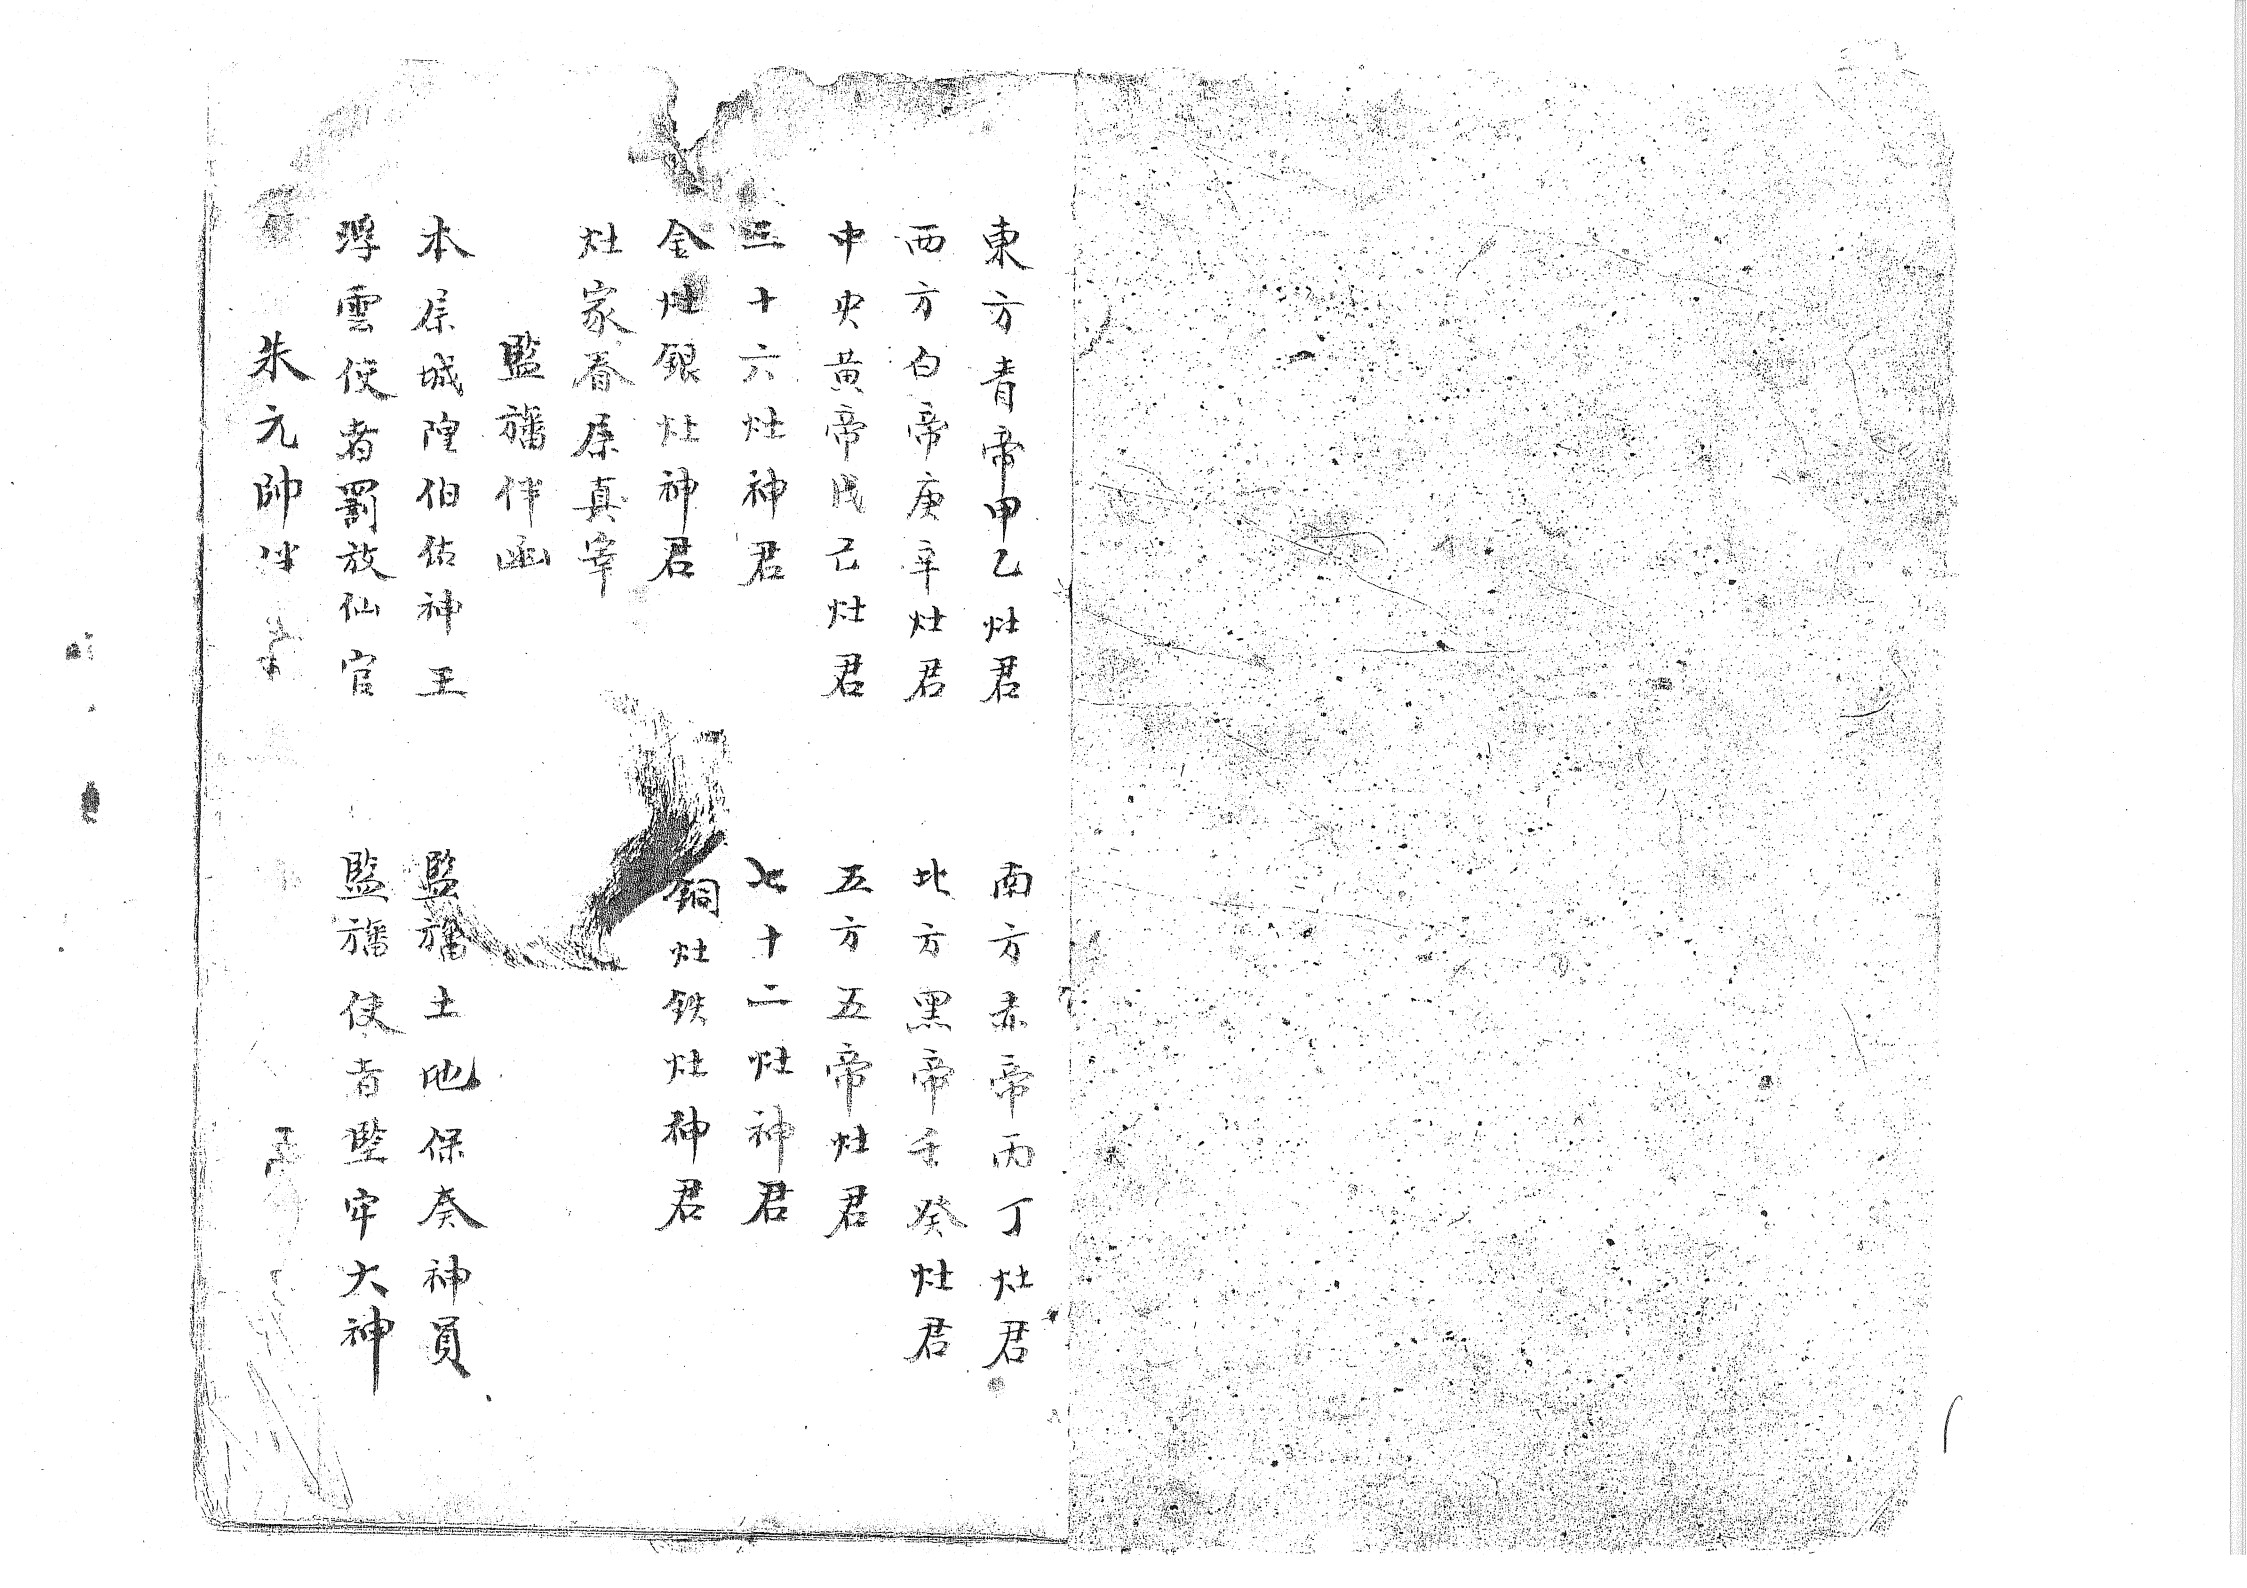 東方青帝甲乙灶君 南方赤帝丙丁灶君
西方白帝庚辛灶君 北方黑帝壬癸灶君
中央黄帝戊己灶君 五方五帝灶君
三十六灶神君 七十二灶神君
金灶銀灶神君 銅灶鉄灶神君
灶家眷属真宰
監旛伴函
本属城隍伯佑神王 監旛土地保奏神員
浮雲使者罰放仙官 監旛使者監牢大神
朱元帥